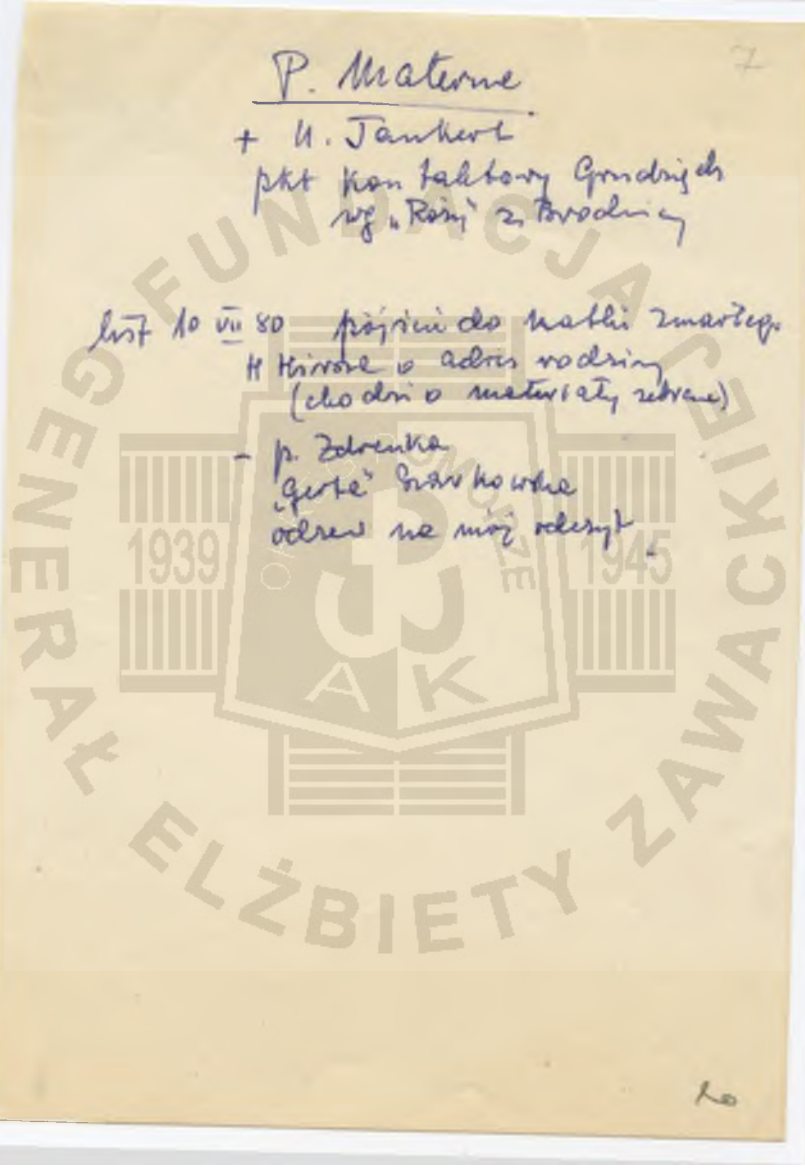 7
P. Materne
+ U. Jankert
pkt kontaktowy Grudziądz
wg „Róży" z Brodnicy
list 10 VII 80 pójście do matki zmarłego
H o adres rodziny
(chodzi o materiały zebrane)
- p. Zdrenka
„Gerta"
odzew na mój odczyt
FUNDACJA
GENERAŁ ELŻBIETY ZAWACKIEJ
1939
1945
POMORZE
AK